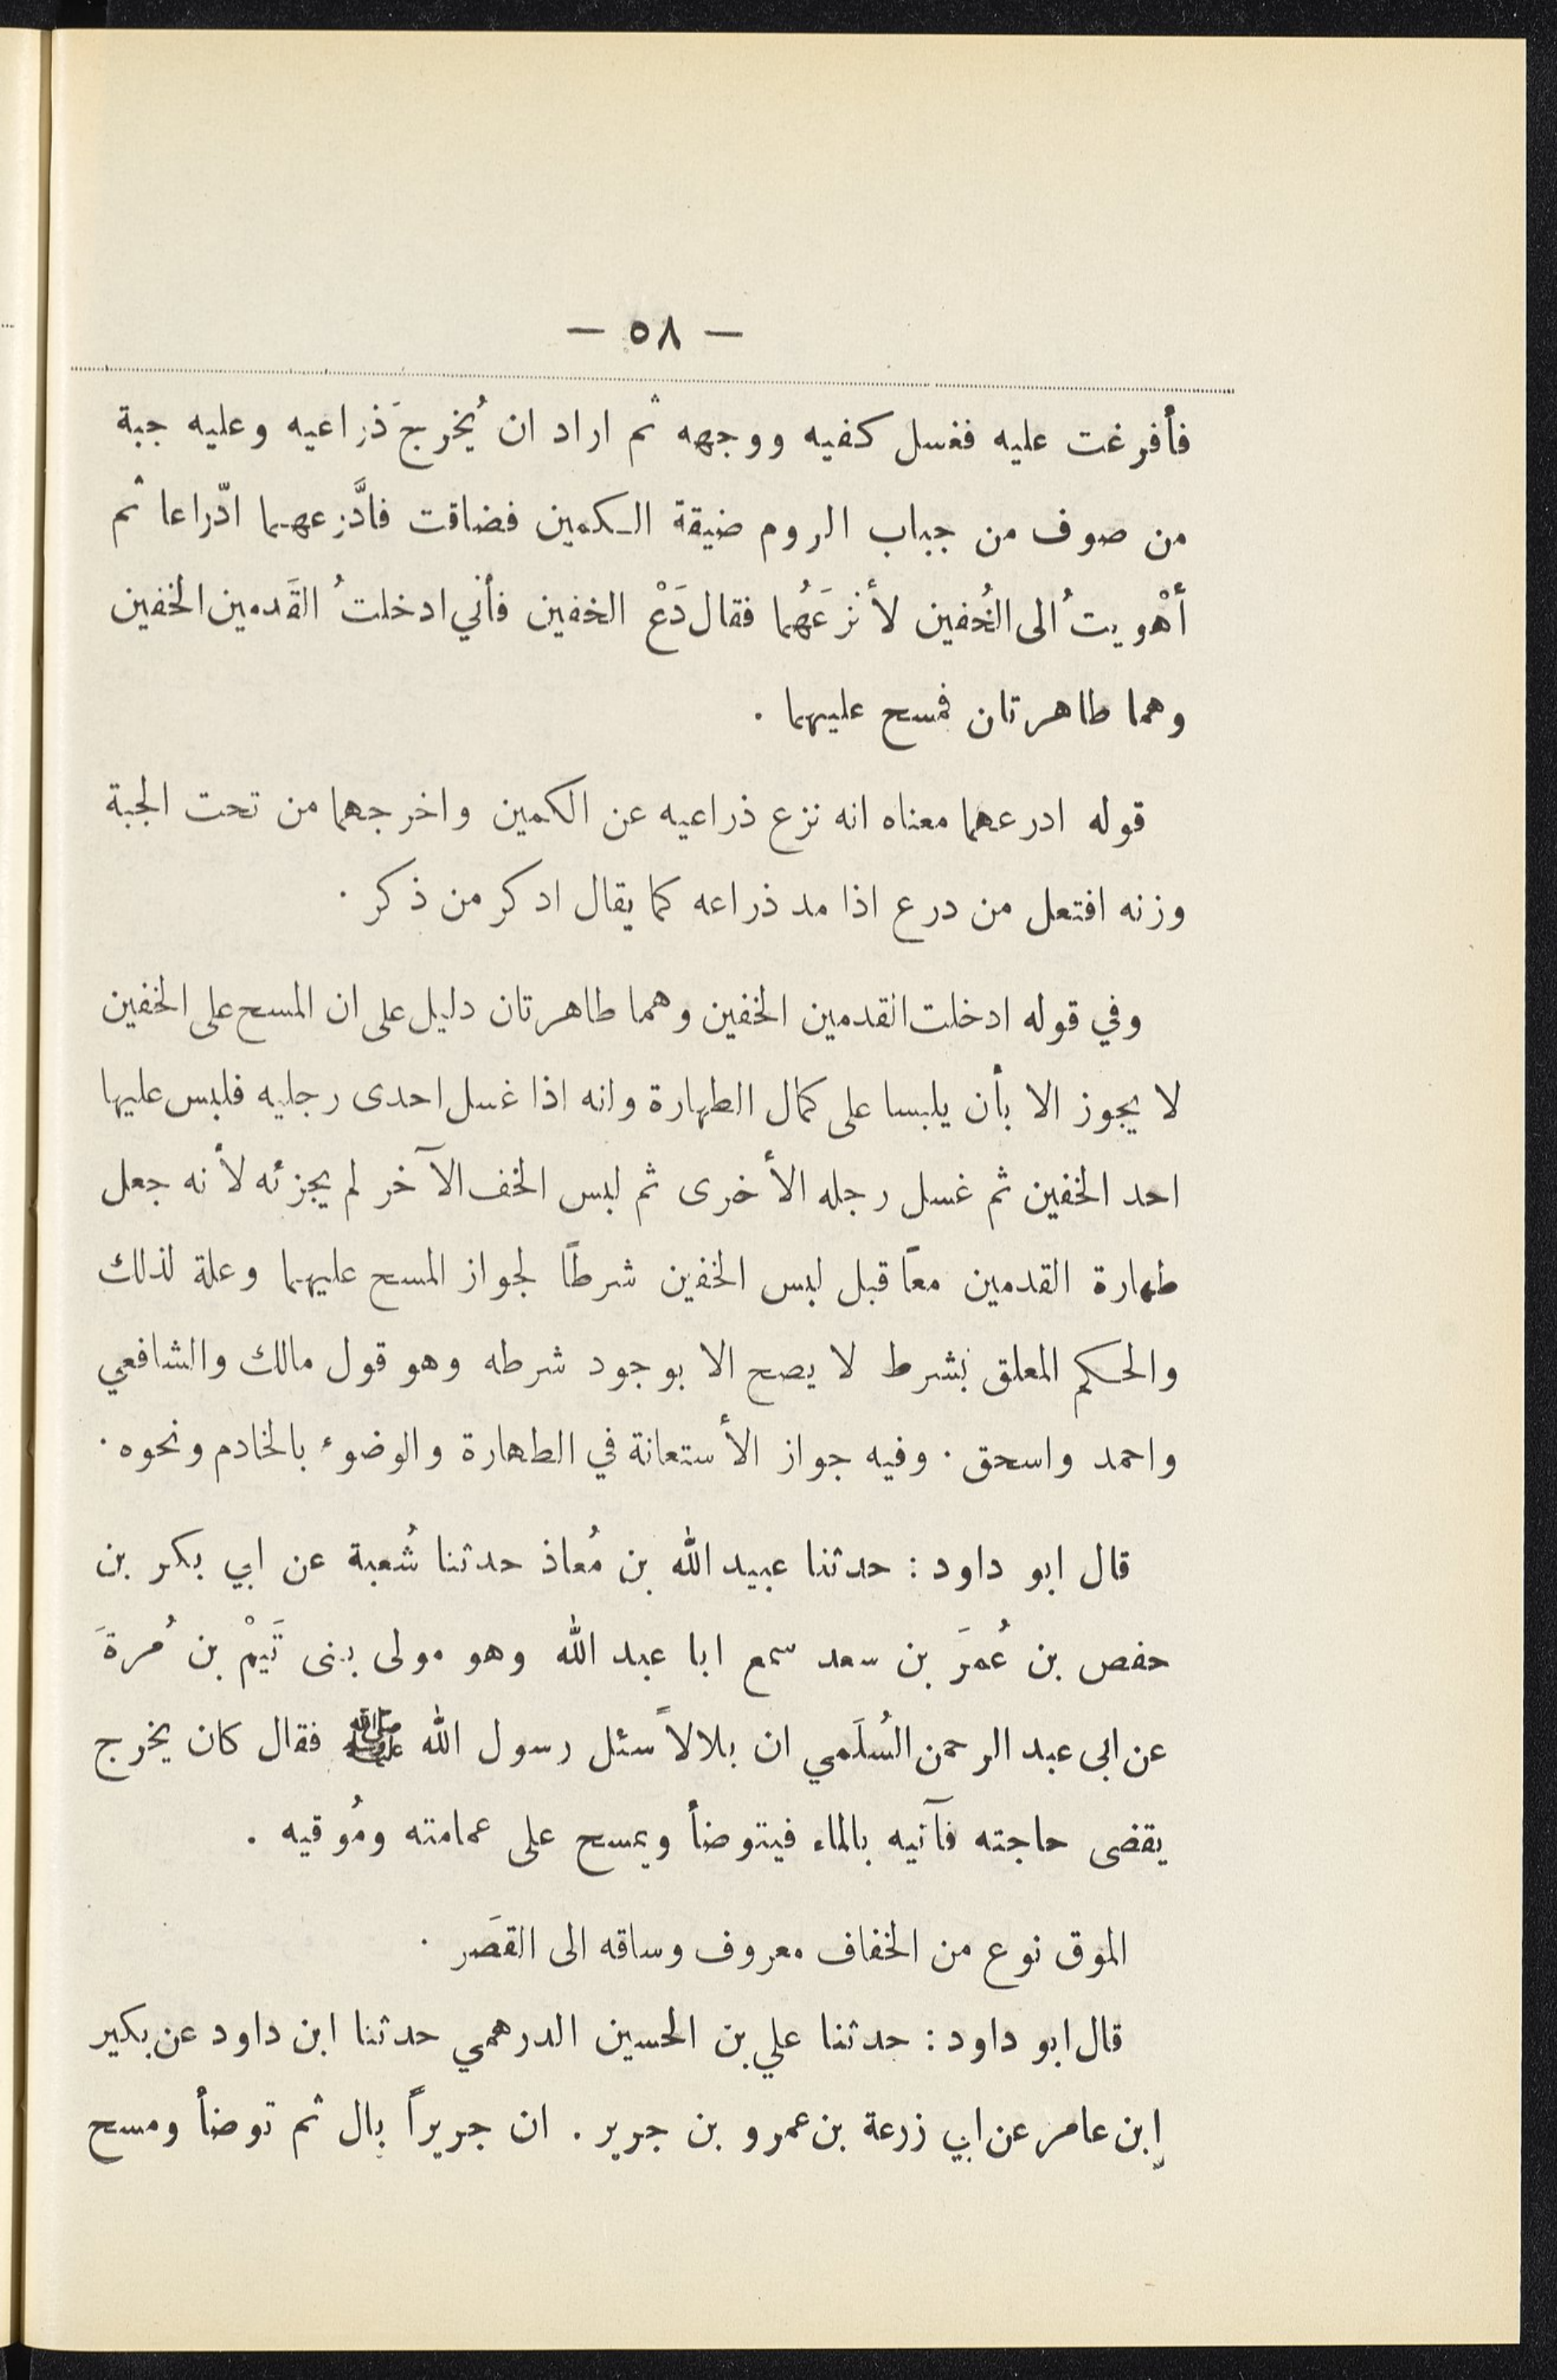 — ٥٨ —
فأفرغت عليه فغسل كفيه ووجهه ثم اراد ان يُخرجَ ذراعيه وعليه جبة
من صوف من جباب الروم ضيقة الكمين فضاقت فادَّرعهما ادّراعا ثم
أهْويتُ الى الخُفين لأنزعَهُما فقال دَعْ الخفين فأني ادخلتُ القَدمين الخفين
وهما طاهرتان فمسح عليهما .
قوله ادرعهما معناه انه نزع ذراعيه عن الكمين واخرجهما من تحت الجبة
وزنه افتعل من درع اذا مد ذراعه كما يقال ادكر من ذكر .
وفي قوله ادخلت القدمين الخفين وهما طاهرتان دليل على ان المسح على الخفين
لا يجوز الا بأن يلبسا على كمال الطهارة وانه اذا غسل احدى رجليه فلبس عليها
احد الخفين ثم غسل رجله الأخرى ثم لبس الخف الآخر لم يجزئه لأنه جعل
طهارة القدمين معاً قبل لبس الخفين شرطاً لجواز المسح عليهما وعلة لذلك
والحكم المعلق بشرط لا يصح الا بوجود شرطه وهو قول مالك والشافعي
واحمد واسحق . وفيه جواز الأستعانة في الطهارة والوضوء بالخادم ونحوه .
قال ابو داود : حدثنا عبيد الله بن مُعاذ حدثنا شُعبة عن ابي بكر بن
حفص بن عُمرَ بن سعد سمع ابا عبد الله وهو مولى بنى تَيمْ بن مُرةَ
عن ابى عبد الرحمن السُلَمي ان بلالاً سئل رسول الله ﷺ فقال كان يخرج
يقضى حاجته فآتيه بالماء فيتوضأ ويمسح على عمامته ومُوقيه .
الموق نوع من الخفاف معروف وساقه الى القصَر .
قال ابو داود : حدثنا علي بن الحسين الدرهمي حدثنا ابن داود عن بكير
إبن عامر عن ابي زرعة بن عمرو بن جرير . ان جريراً بال ثم توضأ ومسح